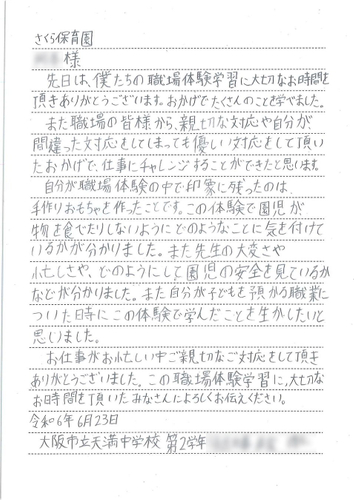 さくら保育園
様
先日は、僕たちの職場体験学習に大切なお時間を
頂きありがとうございます。おかげでたくさんのことを学べました。
また職場の皆様から、親切な対応や自分が
間違った対応をしてしまっても優しい対応をして頂い
たおかげで、仕事にチャレンジすることができたと思います。
自分が職場体験の中で印象に残ったのは、
手作りおもちゃを作ったことです。この体験で園児が
物を食べたりしないようにどのようなことに気を付けて
いるかが分かりました。また先生の大変さや
忙しさや、どのようにして園児の安全を見ているか
などが分かりました。また自分が子どもを預かる職業に
ついた時にこの体験で学んだことを生かしたいと
思いました。
お仕事がお忙しい中ご親切なご対応をして頂き
ありがとうございました。この職場体験学習に、大切な
お時間を頂いたみなさんによろしくお伝えください。
令和6年6月23日
大阪市立天満中学校 第2学年